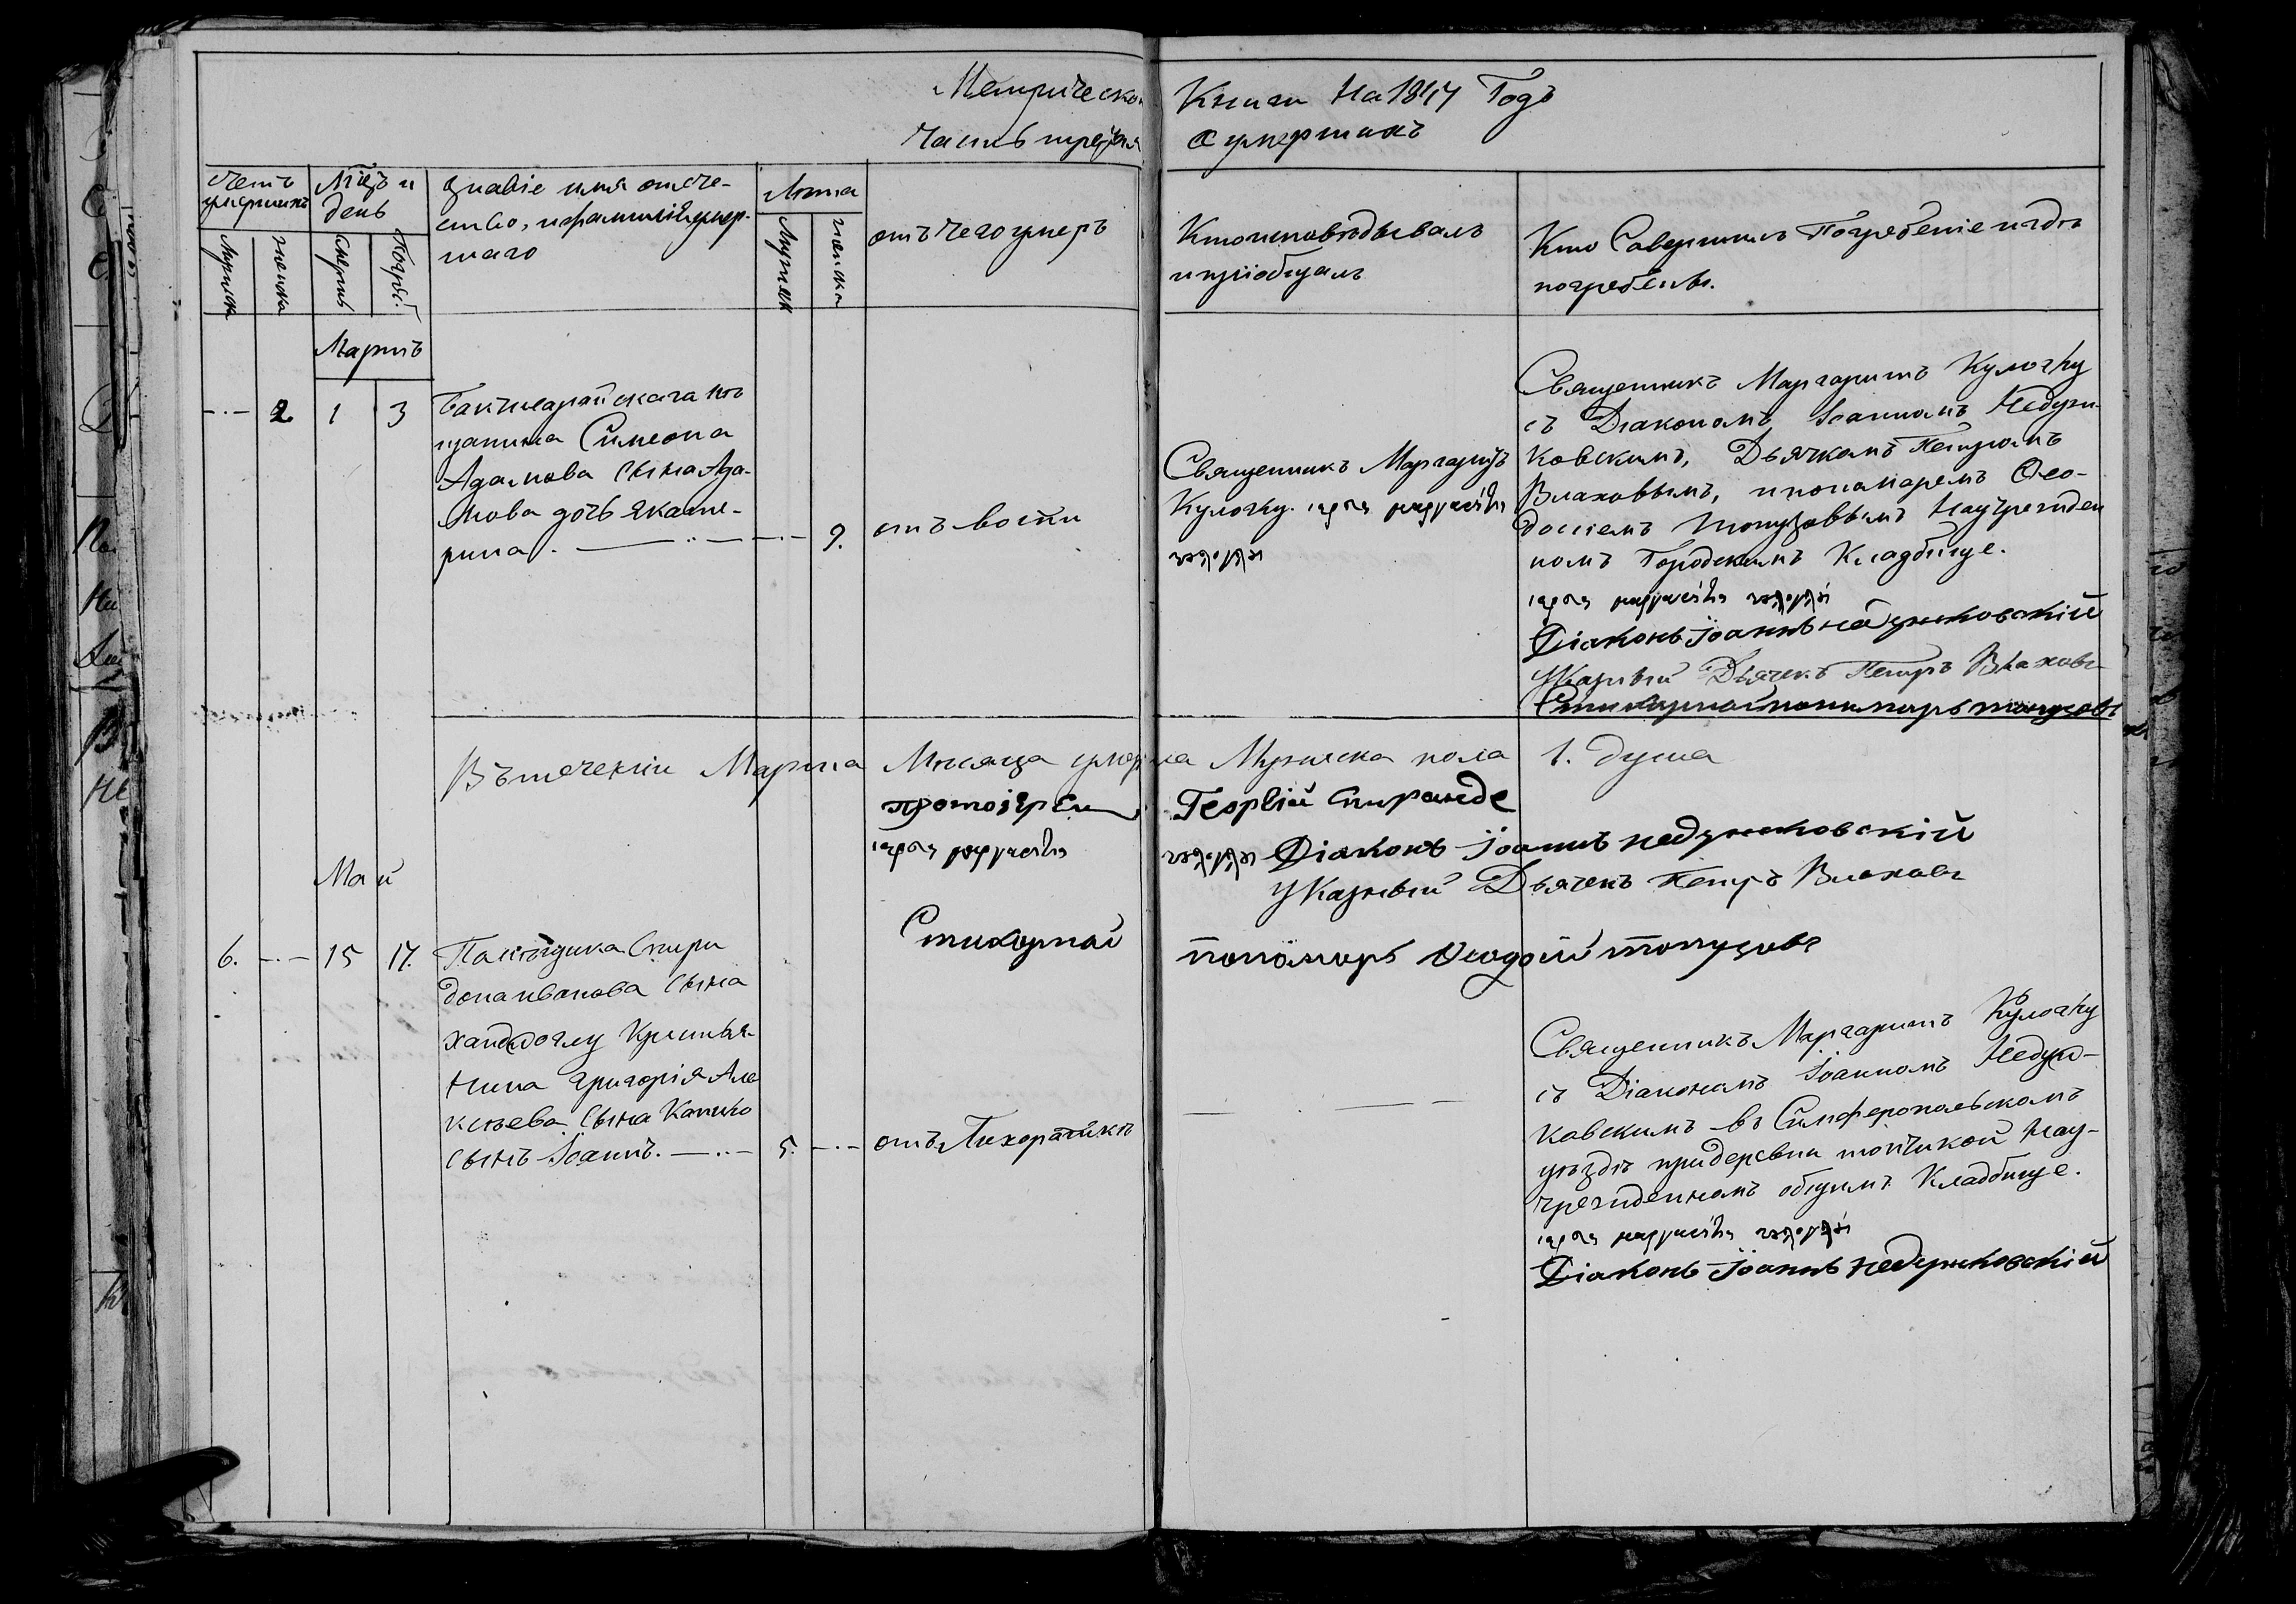 Метрической Книги На 1847 Годъ
Часть третья о умершихъ
Счетъ умершихъ
Мѣс. и день
Званіе имя отече-
ство, и фамилія умер-
шаго
Лѣта
отъ чего умеръ
Кто исповѣдывалъ
и пріобщалъ
Кто Совершилъ Погребеніе и гдѣ
погребены.
Мужска
женска
Смерть
Погреб.
Мужск
женска
Мартъ
2. 1 3
Бакчисарайскаго мѣ
щанина Симеона
Адамова сына Ада-
мова дочь Екате-
рина.
9.
отъ воспи
Священникъ Маргаритъ
Кулогку.
Священникъ Маргаритъ Кулогку
съ Діакономъ Іоанномъ Недзи-
ковскимъ, Дьячкомъ Петромъ
Влаховымъ, и пономаремъ Ѳео-
досіемъ Топузовымъ На учрежден
номъ Городскимъ Кладбище.
Діаконъ Іоаннъ недзиковскій
Указный Дьячекъ Петръ Влаховъ
Стихарный пономарь топузовъ
Въ теченіи Марта Мѣсяца умерла Мужеска пола 1. душа
протоіереи Георгій Спиранде
Діаконъ Іоаннъ недзиковскій
Указный Дьячекъ Петръ Влаховъ
Стихарный пономарь Ѳеодосій топузовъ
Май
6. 15 17.
Спири
дона иванова Сына
Григорія Але
ксѣева Сына
сынъ Іоаннъ.
5.
отъ Лихорадки
Священникъ Маргаритъ Кулогку
съ Діакономъ Іоанномъ Недзи-
ковскимъ въ Симферопольскомъ
уѣздѣ при деревни топчикой На у-
чрежденномъ общимъ Кладбище.
Діаконъ Іоаннъ недзиковскій